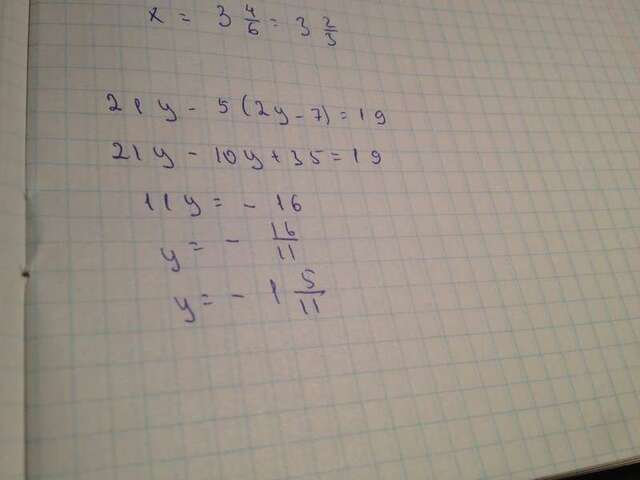 x = 3 4/6 = 3 2/3
21y - 5(2y - 7) = 19
21y - 10y + 35 = 19
11y = - 16
y = - 16/11
y = - 1 5/11